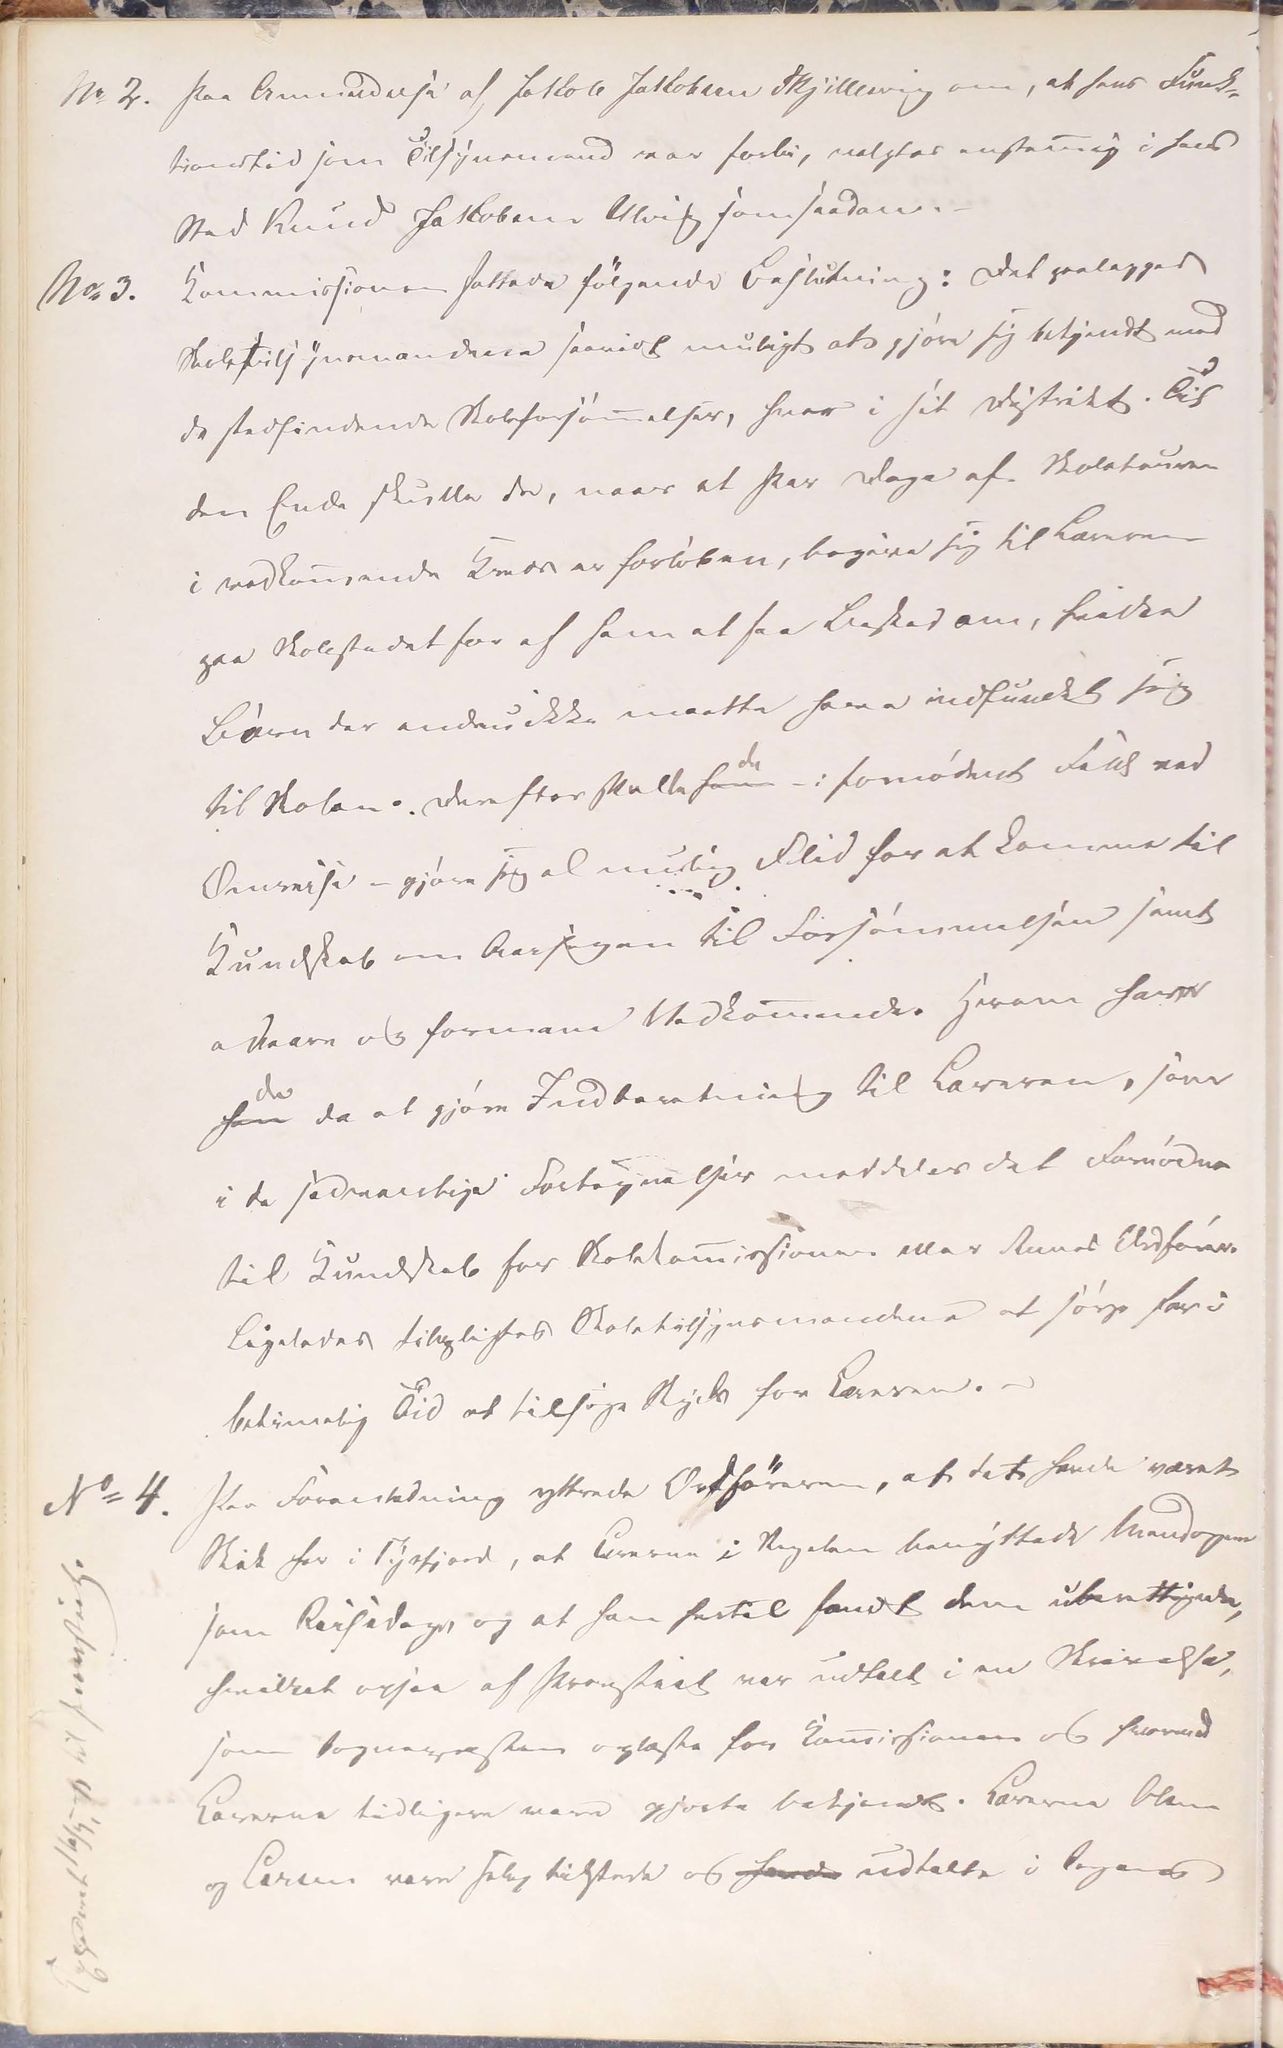 No 2. Paa Anmodelse af Jakob Jakobsen Skjellevig om, at hans Funk-
tionstid som Tilsynsmand var forbi, valgtes enstemig i hans
Sted Knud Jakobsen Ulvig som saadan. -
No 3. Kommissionen fattede følgende Beslutning: Det paalægges
Skoletilsynsmændene saavidt muligt at gjøre sig bekjendt med
de stedfindende Skoleforsømelser, hver i sit Distrikt. Til
den Ende skulle de, naar et Par Dage af Skoletouren
i vedkomende Kreds er forløben, begive sig til Læreren
paa Skolestedet for af ham at faa Besked om, hvilke
Børn der endnu ikke maatte have indfundet sig
til Skolen. Derefter skulle de - i fornødent Fald ved
Omreise - gjøre sig al mulig Flid for at komme til
Kundskab om Aarsagen til Forsømmelsen samt
advare og formane Vedkomende. Herom have
de da at gjøre Indberetning til Læreren, som
i de sædvanlige Fortegnelser meddeler det Fornødne
til Kundskab for Skolekomissionen eller dennes Ordfører.
Ligeledes tilpligtes Skoletilsynsmændene at sørge for i
betimelig Tid at tilsige Skyds for Læreren. -
No 4. Paa Foranledning yttrede Ordføreren, at det havde været
Skik her i Tysfjord, at Lærerne i Regelen benyttede Mandagene
som Reisedage, og at han hertil fandt dem uberettigede,
hvilket ogsaa af Provstiet var udtalt i en Skrivelse,
som Sognepræsten oplæste for Komissionen og hvormed
Lærerne tidligere vare gjorte bekjendt. Lærerne Olsen
og Larsen vare selv tilstede og havde udtalte i Sagens
til Provstiet.